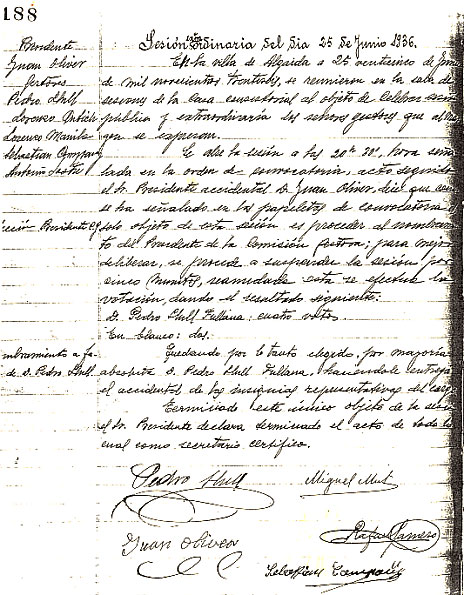 188
Presidente
Juan Oliver
Gestores
Pedro Llull
Lorenzo
Lorenzo
Sebastian
Antonio
Sesión extraordinaria del dia 25 de Junio 1936.
En la villa de Algaida a 25 veinticinco de
de mil novecientos treintiseis, se reunieron en la sala de
sesiones de la Casa consistorial al objeto de celebrar
publica y extraordinaria los señores gestores que al
gen se expresan.
Se abre la sesión a las 20h 30', hora seña
lada en la orden de convocatoria, acto seguido
el Sr. Presidente accidental D. Juan Oliver, dice que
se ha señalado en las papeletas de convocatoria
Presidente
solo objeto de esta sesión es proceder al nombramien
to del Presidente de la Comisión Gestora; para mejor
deliberar, se procede a suspender la sesión por
cinco minutos, reanudada esta se efectua la
votación, dando el resultado siguiente:
D. Pedro Llull Fullana: cuatro votos.
En blanco: dos.
nombramiento a fa
de D. Pedro Llull
Quedando por lo tanto elegido, por mayoria
absoluta D. Pedro Llull Fullana, haciendole entrega
el accidental de las insignias representativas del cargo
Terminado este único objeto de la
el Sr. Presidente declara terminado el acto de todo lo
cual como secretario certifico.
Pedro Llull
Miguel Mut
Juan Oliver
Rafael
Sebastian